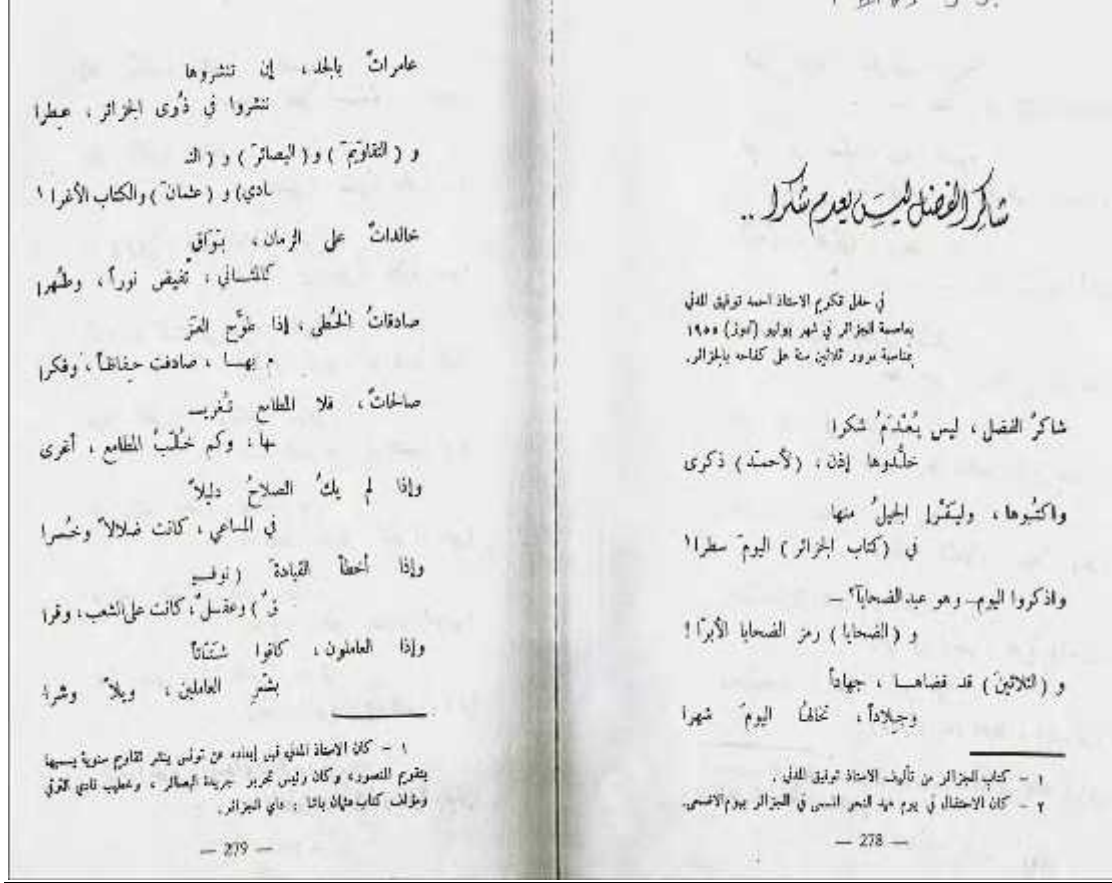 شاكر الفضل ليس يعدم شكرا ..
في حفل تكريم الاستاذ احمد توفيق المدني
بعاصمة الجزائر في شهر يوليو (تموز) ١٩٥٥
بمناسبة مرور ثلاثين سنة على كفاحه بالجزائر.
شاكرُ الفضل ، ليس يُعْدَمُ شكرا
خلّدوها إذن ، (لأحمد) ذكرى
واكتُبوها ، وليَقْرإ الجيلُ منها
في (كتاب الجزائر) اليومَ سطرا¹
واذكروا اليوم ــ وهو عيد الضحايا² ــ
و (الضحايا) رمز الضحايا الأبرّا !
و (الثلاثينَ) قد قضاهـا ، جهاداً
وجلاداً ، تخالها اليومَ شهرا
١ – كتاب الجزائر من تأليف الاستاذ توفيق المدني .
٢ – كان الاحتفال في يوم عيد النحر المسمى في الجزائر بيوم الاضحى.
— 278 —
عامراتٌ بالمجد ، إن تنشروها
تنشروا في ذُرى الجزائر ، عطرا
و (التقاويمَ) و (البصائرَ) و (النـ
ـادي) و (عثمانَ) والكتاب الأغرا ¹
خالداتٌ على الزمان ، بَوَاقٍ
كالمثـاني ، تُفيض نوراً ، وطُهرا
صادقاتُ الخُطى ، إذا طوَّح العَزْ
م بهـا ، صادفت حفاظاً ، وفكرا
صالحاتٌ ، فلا المطامع تُغريـ
ـها ، وكم خُلّبُ المطامع ، أغرى
وإذا لم يكُ الصلاحُ دليلاً
في المساعي ، كانت ضلالاً وخُسرا
وإذا أخطأ القيادةَ (توفيـ
ـقٌ) وعقـلٌ ، كانت على الشعب ، وقرا
وإذا العاملون ، كانوا شَتَاتاً
بشّر العاملين ، ويلاً وشرا
١ – كان الاستاذ المدني قبل إبعاده عن تونس ينشر تقاويم سنوية يسميها
بتقويم المنصور، وكان رئيس تحرير جريدة البصائر ، وخطيب نادي الترقي
ومؤلف كتاب عثمان باشا داي الجزائر.
— 279 —